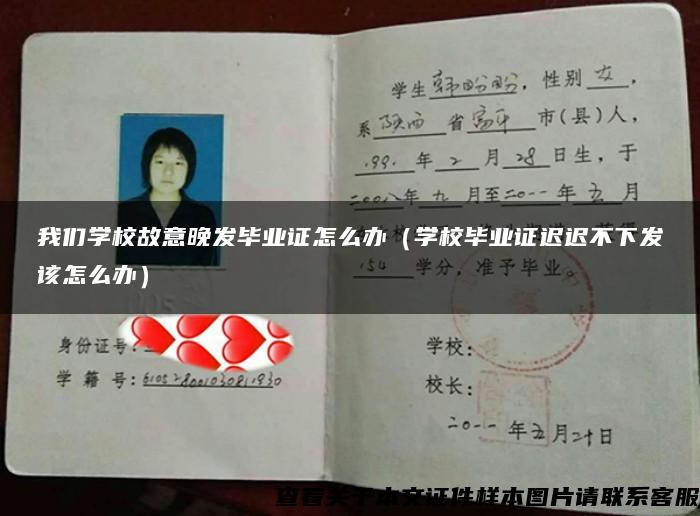 学生韩盼盼，性别女，
系陕西省富平市(县)人，
1991年2月28日生，于
二00八年九月至二0一一年五月
我们学校故意晚发毕业证怎么办（学校毕业证迟迟不下发
该怎么办）
154学分，准予毕业。
身份证号：
学籍号：
学校：
校长：
二0一一年五月二十日
查看关于本文证件样本图片请联系客服